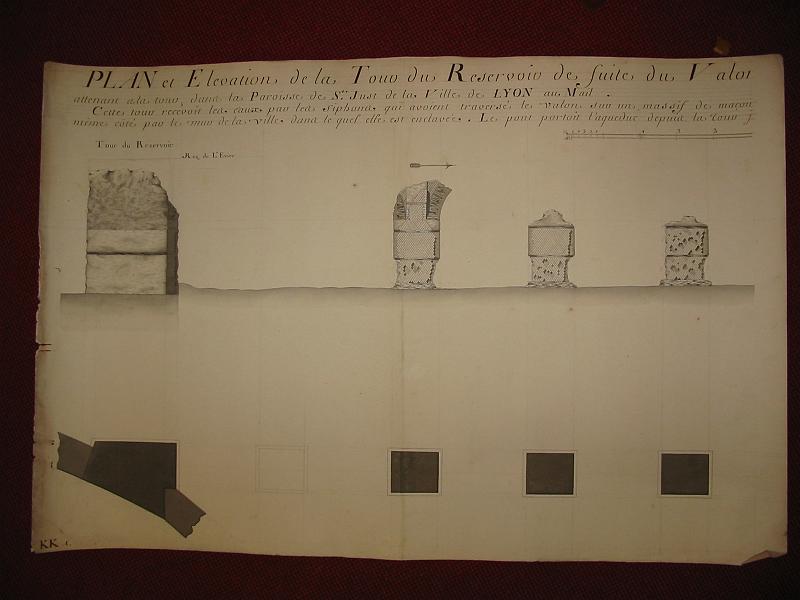 PLAN et Elevation de la Tour du Reservoir de suite du Valon
attenant a la tour, dans la Paroisse de St. Just de la Ville de LYON au Midi.
Cette tour recevoit les eaux par les siphons qui avoient traversé le valon sur un massif de maçon
même côté par le mur de la ville, dans le quel elle est enclavée. Le pont portoit l'aqueduc depuis la tour
Tour du Reservoir
KK